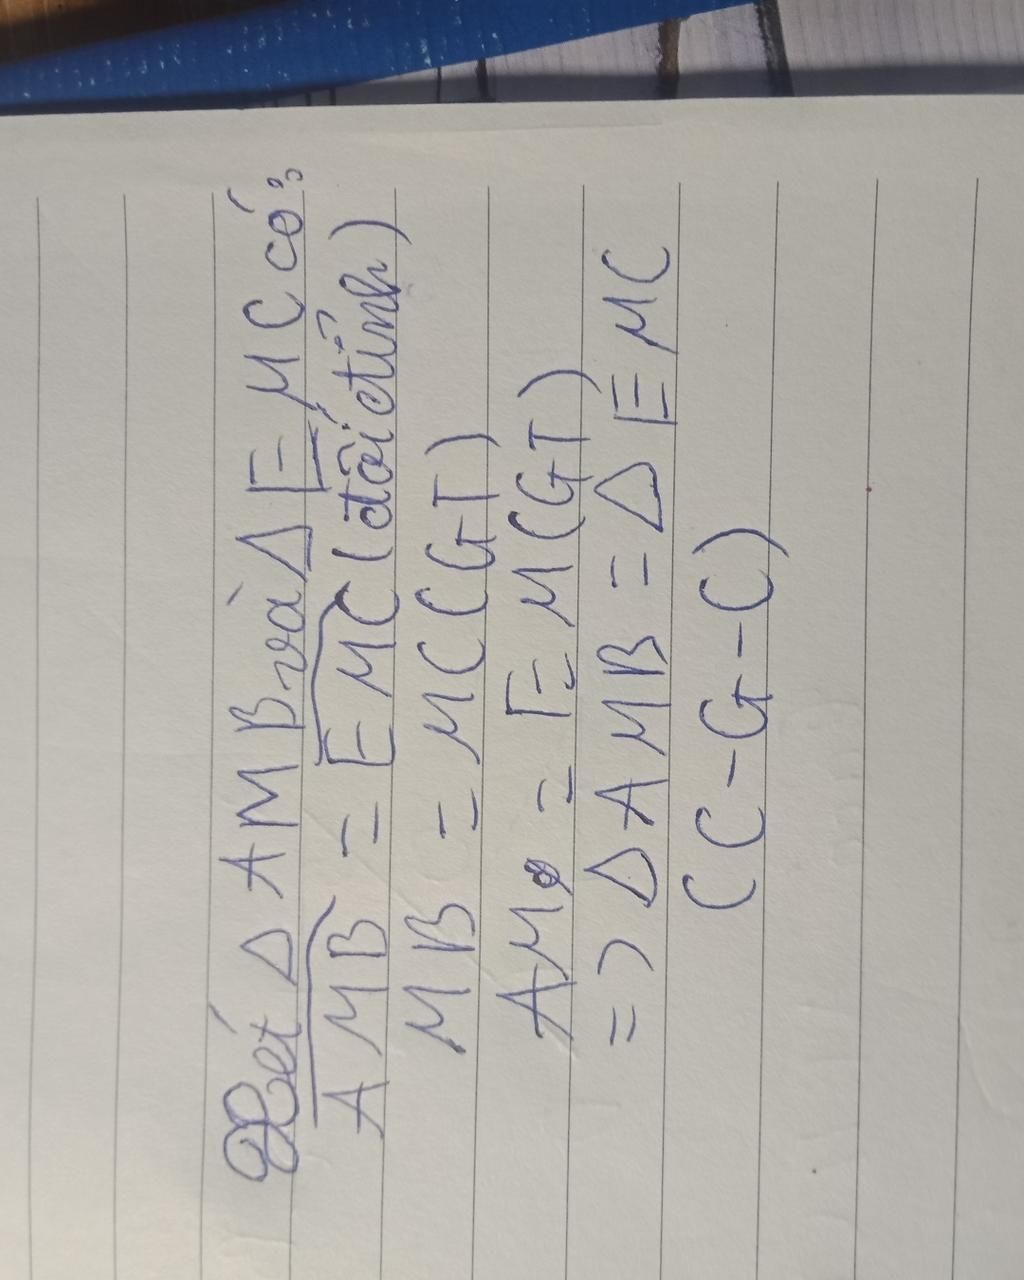 Xét Δ AMB và Δ EMC có:
AMB = EMC (đối đỉnh)
MB = MC (GT)
AM = EM (GT)
=> Δ AMB = Δ EMC
(C-G-C)